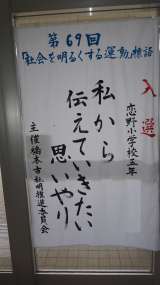 第69回
社会を明るくする運動標語
入選
恋野小学校五年
私から
伝えていきたい
思いやり
主催橋本市社明推進委員会